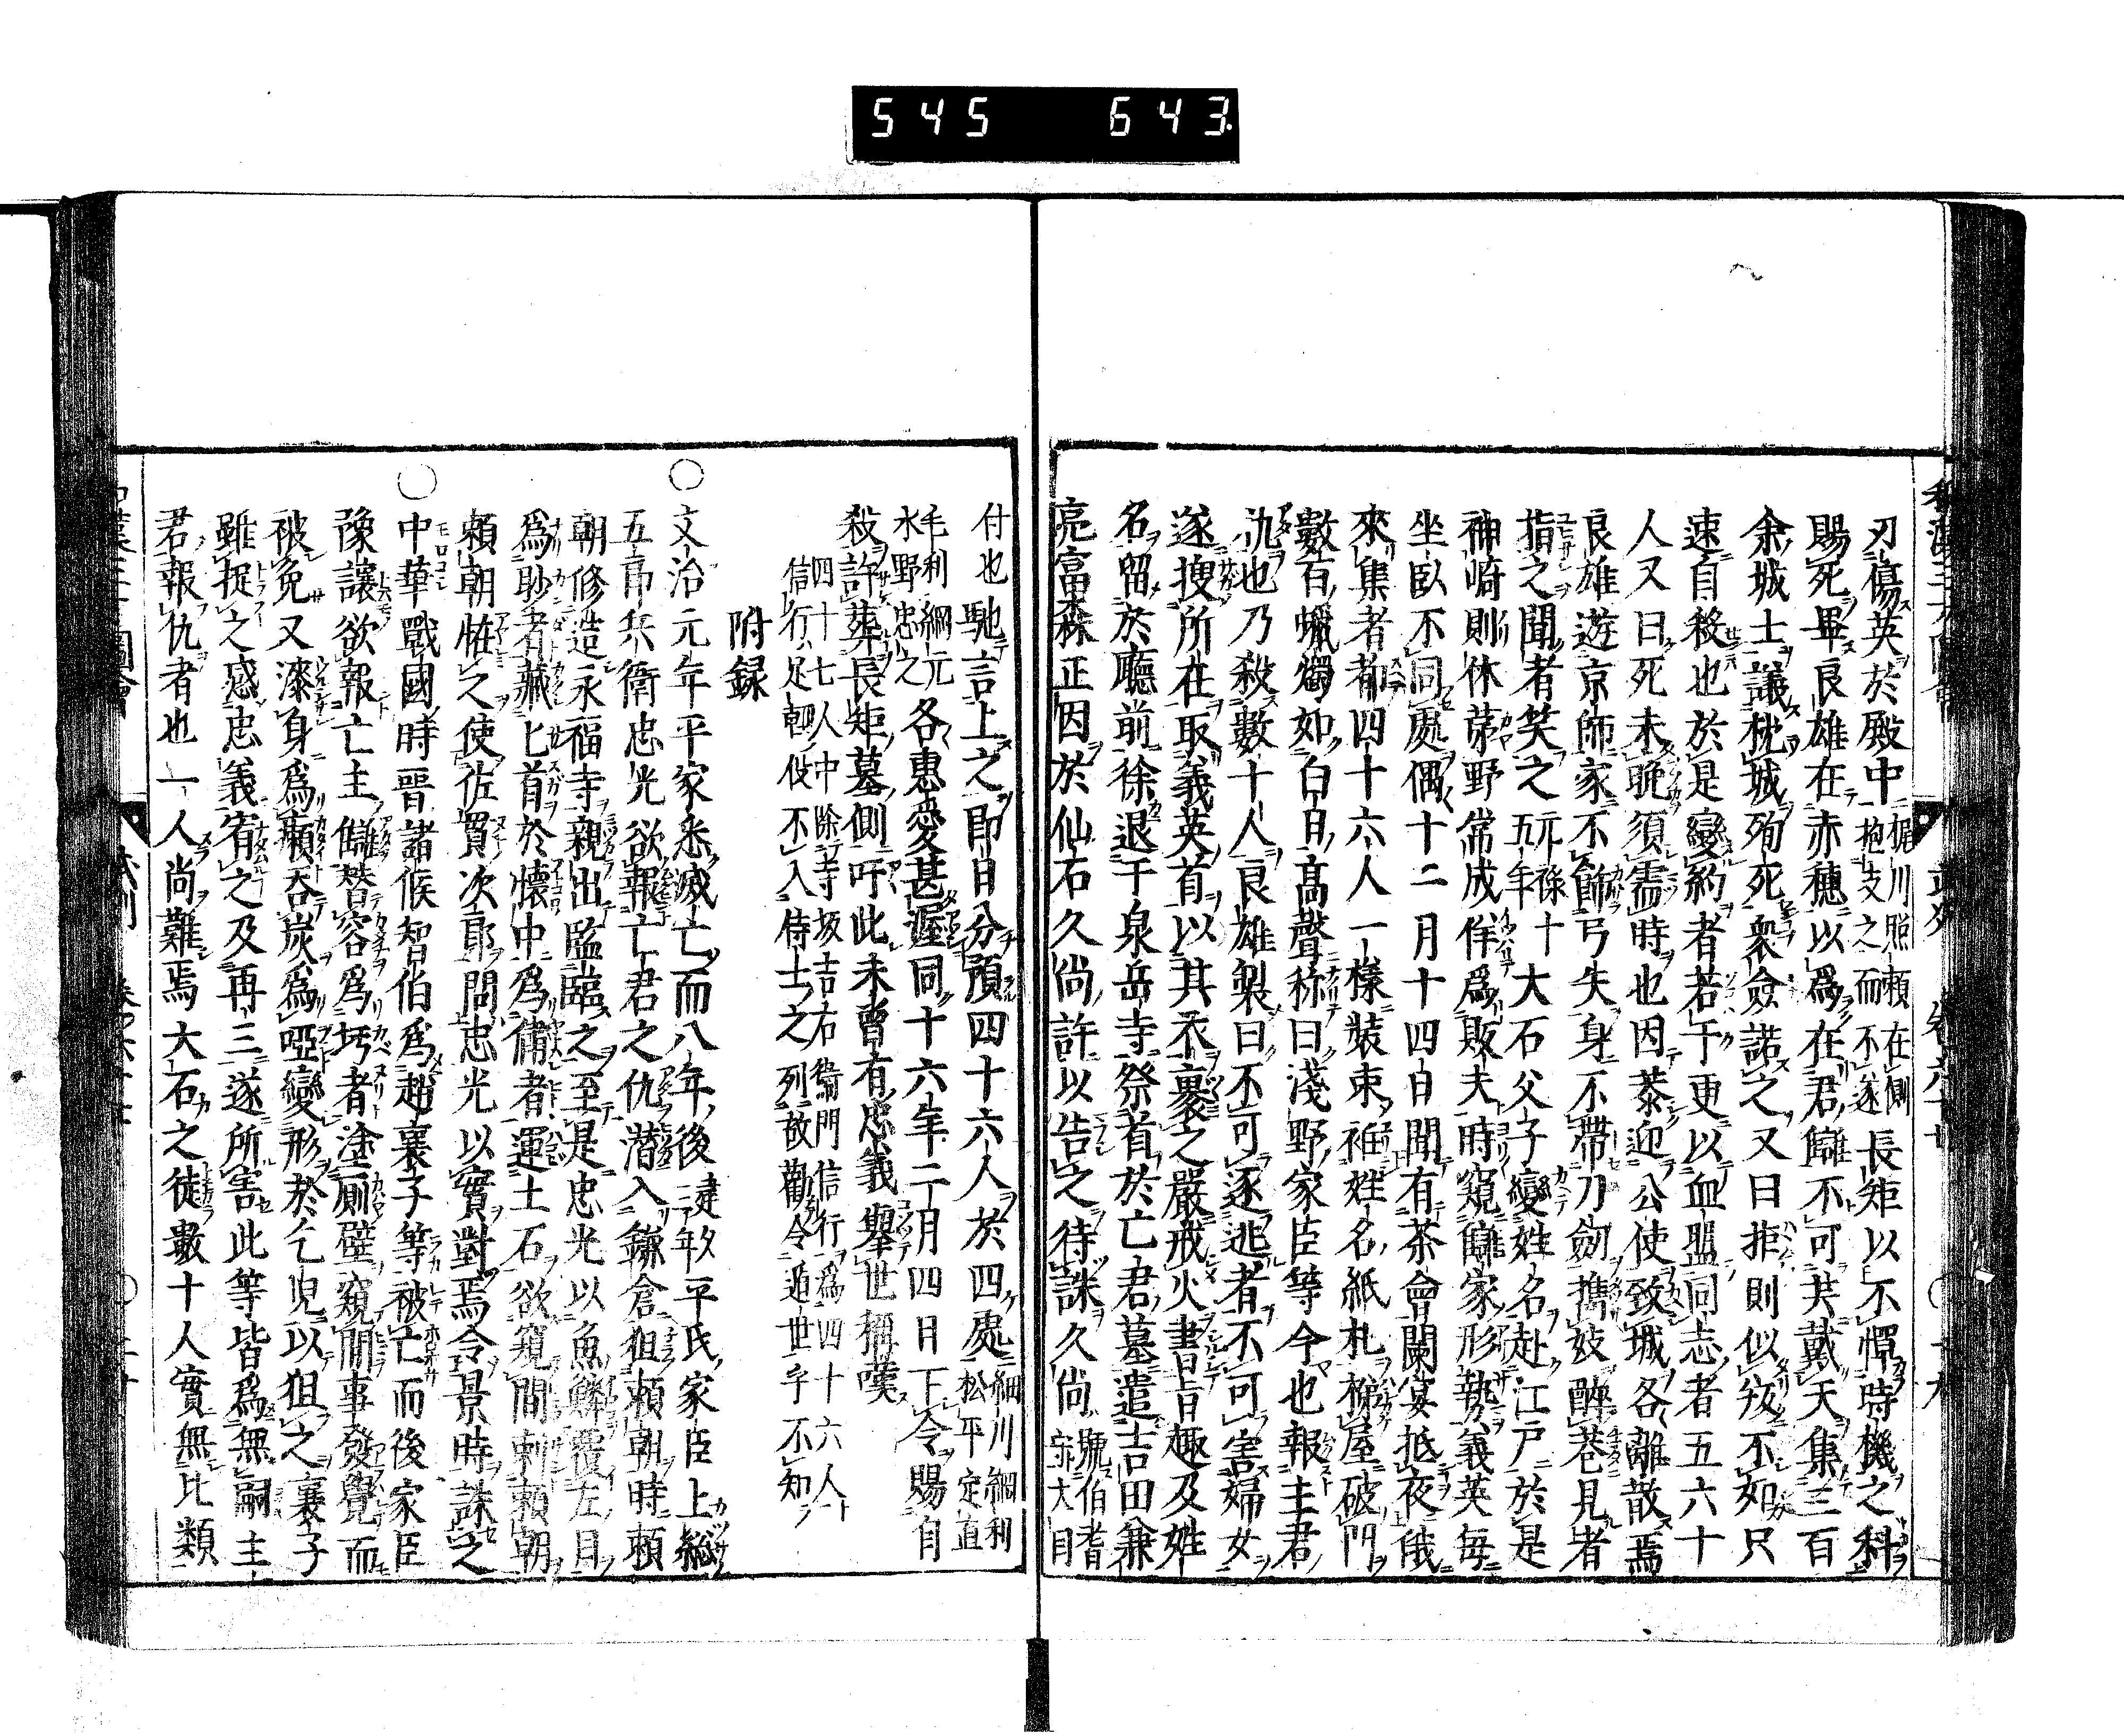 545 643
刃傷英於殿中梶川照頼在側抱支之而不遂長矩以不憚時機之科
賜死畢良雄在赤穗以爲在君讎不可共戴天集三百
余城士議枕城殉死衆僉諾之又曰拒則似叛不如只
速自殺也於是變約者若干更以血盟同志者五六十
人又曰死未晩須需時也因恭迎公使致城各離散焉
良雄遊京師家不飾弓矢身不帶刀劔携妓醉巷見者
指之聞者笑之元祿十五年大石父子變姓名赴江戸於是
神崎則休茅野常成佯爲販夫時窺讎家形勢義英毎
坐臥不同處偶十二月十四日聞有茶會闌宴抵夜俄
來集者都四十六人一樣裝束袖姓名紙札梯屋破門
數百蠟燭如白日髙聲称曰淺野家臣等今也報主君
仇也乃殺數十人良雄製曰不可逐逃者不可害婦女
遂搜所在取義英首以其衣裹之嚴戒火書旨趣及姓
名留於廳前徐退于泉岳寺祭首於亡君墓遣吉田兼
亮富森正因於仙石久尚許以告之待誅久尚號伯耆守大目
付也馳言上之即日分預四十六人於四處細川綱利松平定直
毛利綱元水野忠之各惠愛甚渥同十六年二月四日下令賜自
殺許葬長矩墓側吁此未曾有忠義擧世稱嘆
四十七人中除寺坂吉右衞門信行爲四十六人
信行足輕役不入侍士之列故勸令遁世乎不知
附録
○文治元年平家悉滅亡而八年後建久三年平氏家臣上総
五郎兵衛忠光欲報亡君之仇潜入鎌倉狙頼朝時頼
朝修造永福寺親出監臨之至是忠光以魚鱗覆左目
爲眇者藏匕首於懷中爲傭者運土石欲窺間刺頼朝
頼朝恠之使佐貫次郎問忠光以實對焉令景時誅之
○中華戰國時晉諸侯智伯爲趙襄子等被亡而後家臣
豫讓欲報亡主讎替容爲圬者塗厠壁窺間事發覺而
被免又漆身爲癩呑炭爲啞變形於乞児以狙之襄子
雖捉之感忠義宥之及再三遂所害此等皆爲無嗣主
君報仇者也一人尚難焉大石之徒數十人實無比類